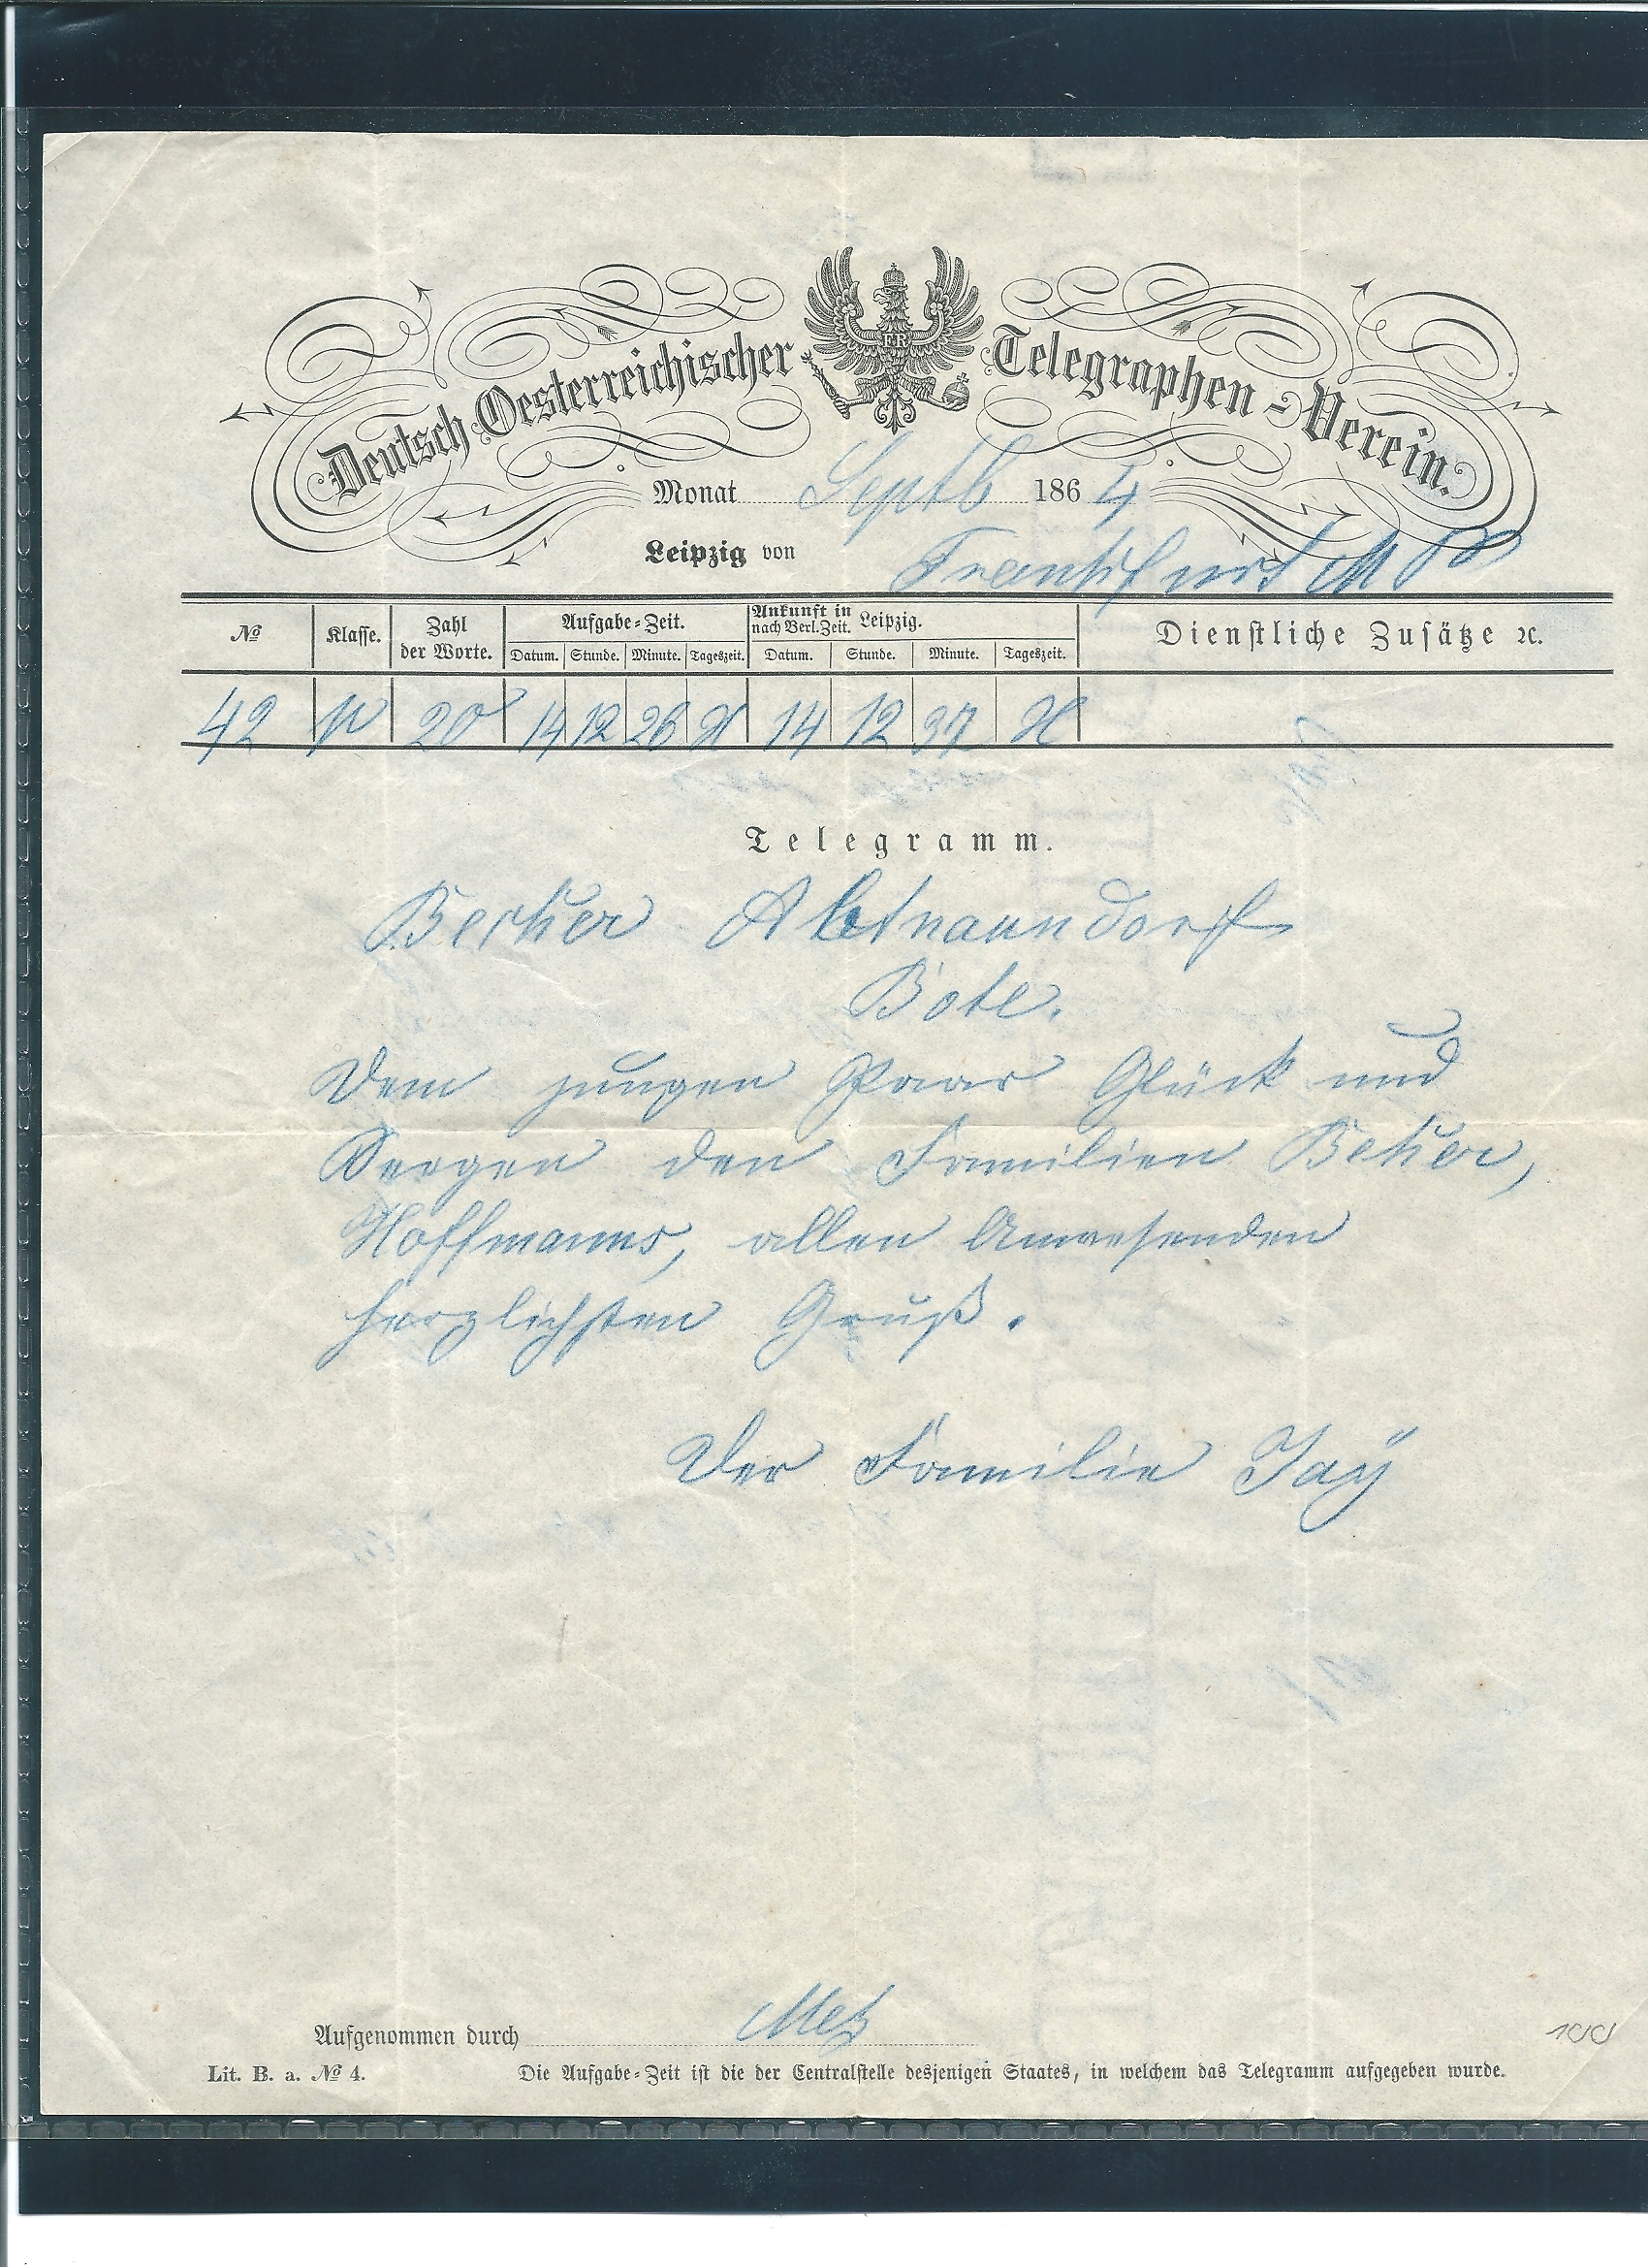 Deutsch Oesterreichischer Telegraphen-Verein.
FR
Monat Septb 1864
Leipzig von Frankfurt M
No Klasse. Zahl der Worte. Aufgabe-Zeit. Ankunft in nach Berl. Zeit. Leipzig. Dienstliche Zusätze ꝛc.
Datum. Stunde. Minute. Tageszeit. Datum. Stunde. Minute. Tageszeit.
42 20 14 12 26 14 12 37
Telegramm.
Becker Abtnaundorf
Bote.
Dem jungen Paar Glück und
Seegen den Familien Beker,
Hoffmanns, allen Anwesenden
herzlichsten Gruß.
Der Familie Jaÿ
Aufgenommen durch
Lit. B. a. No 4. Die Aufgabe-Zeit ist die der Centralstelle desjenigen Staates, in welchem das Telegramm aufgegeben wurde.
100